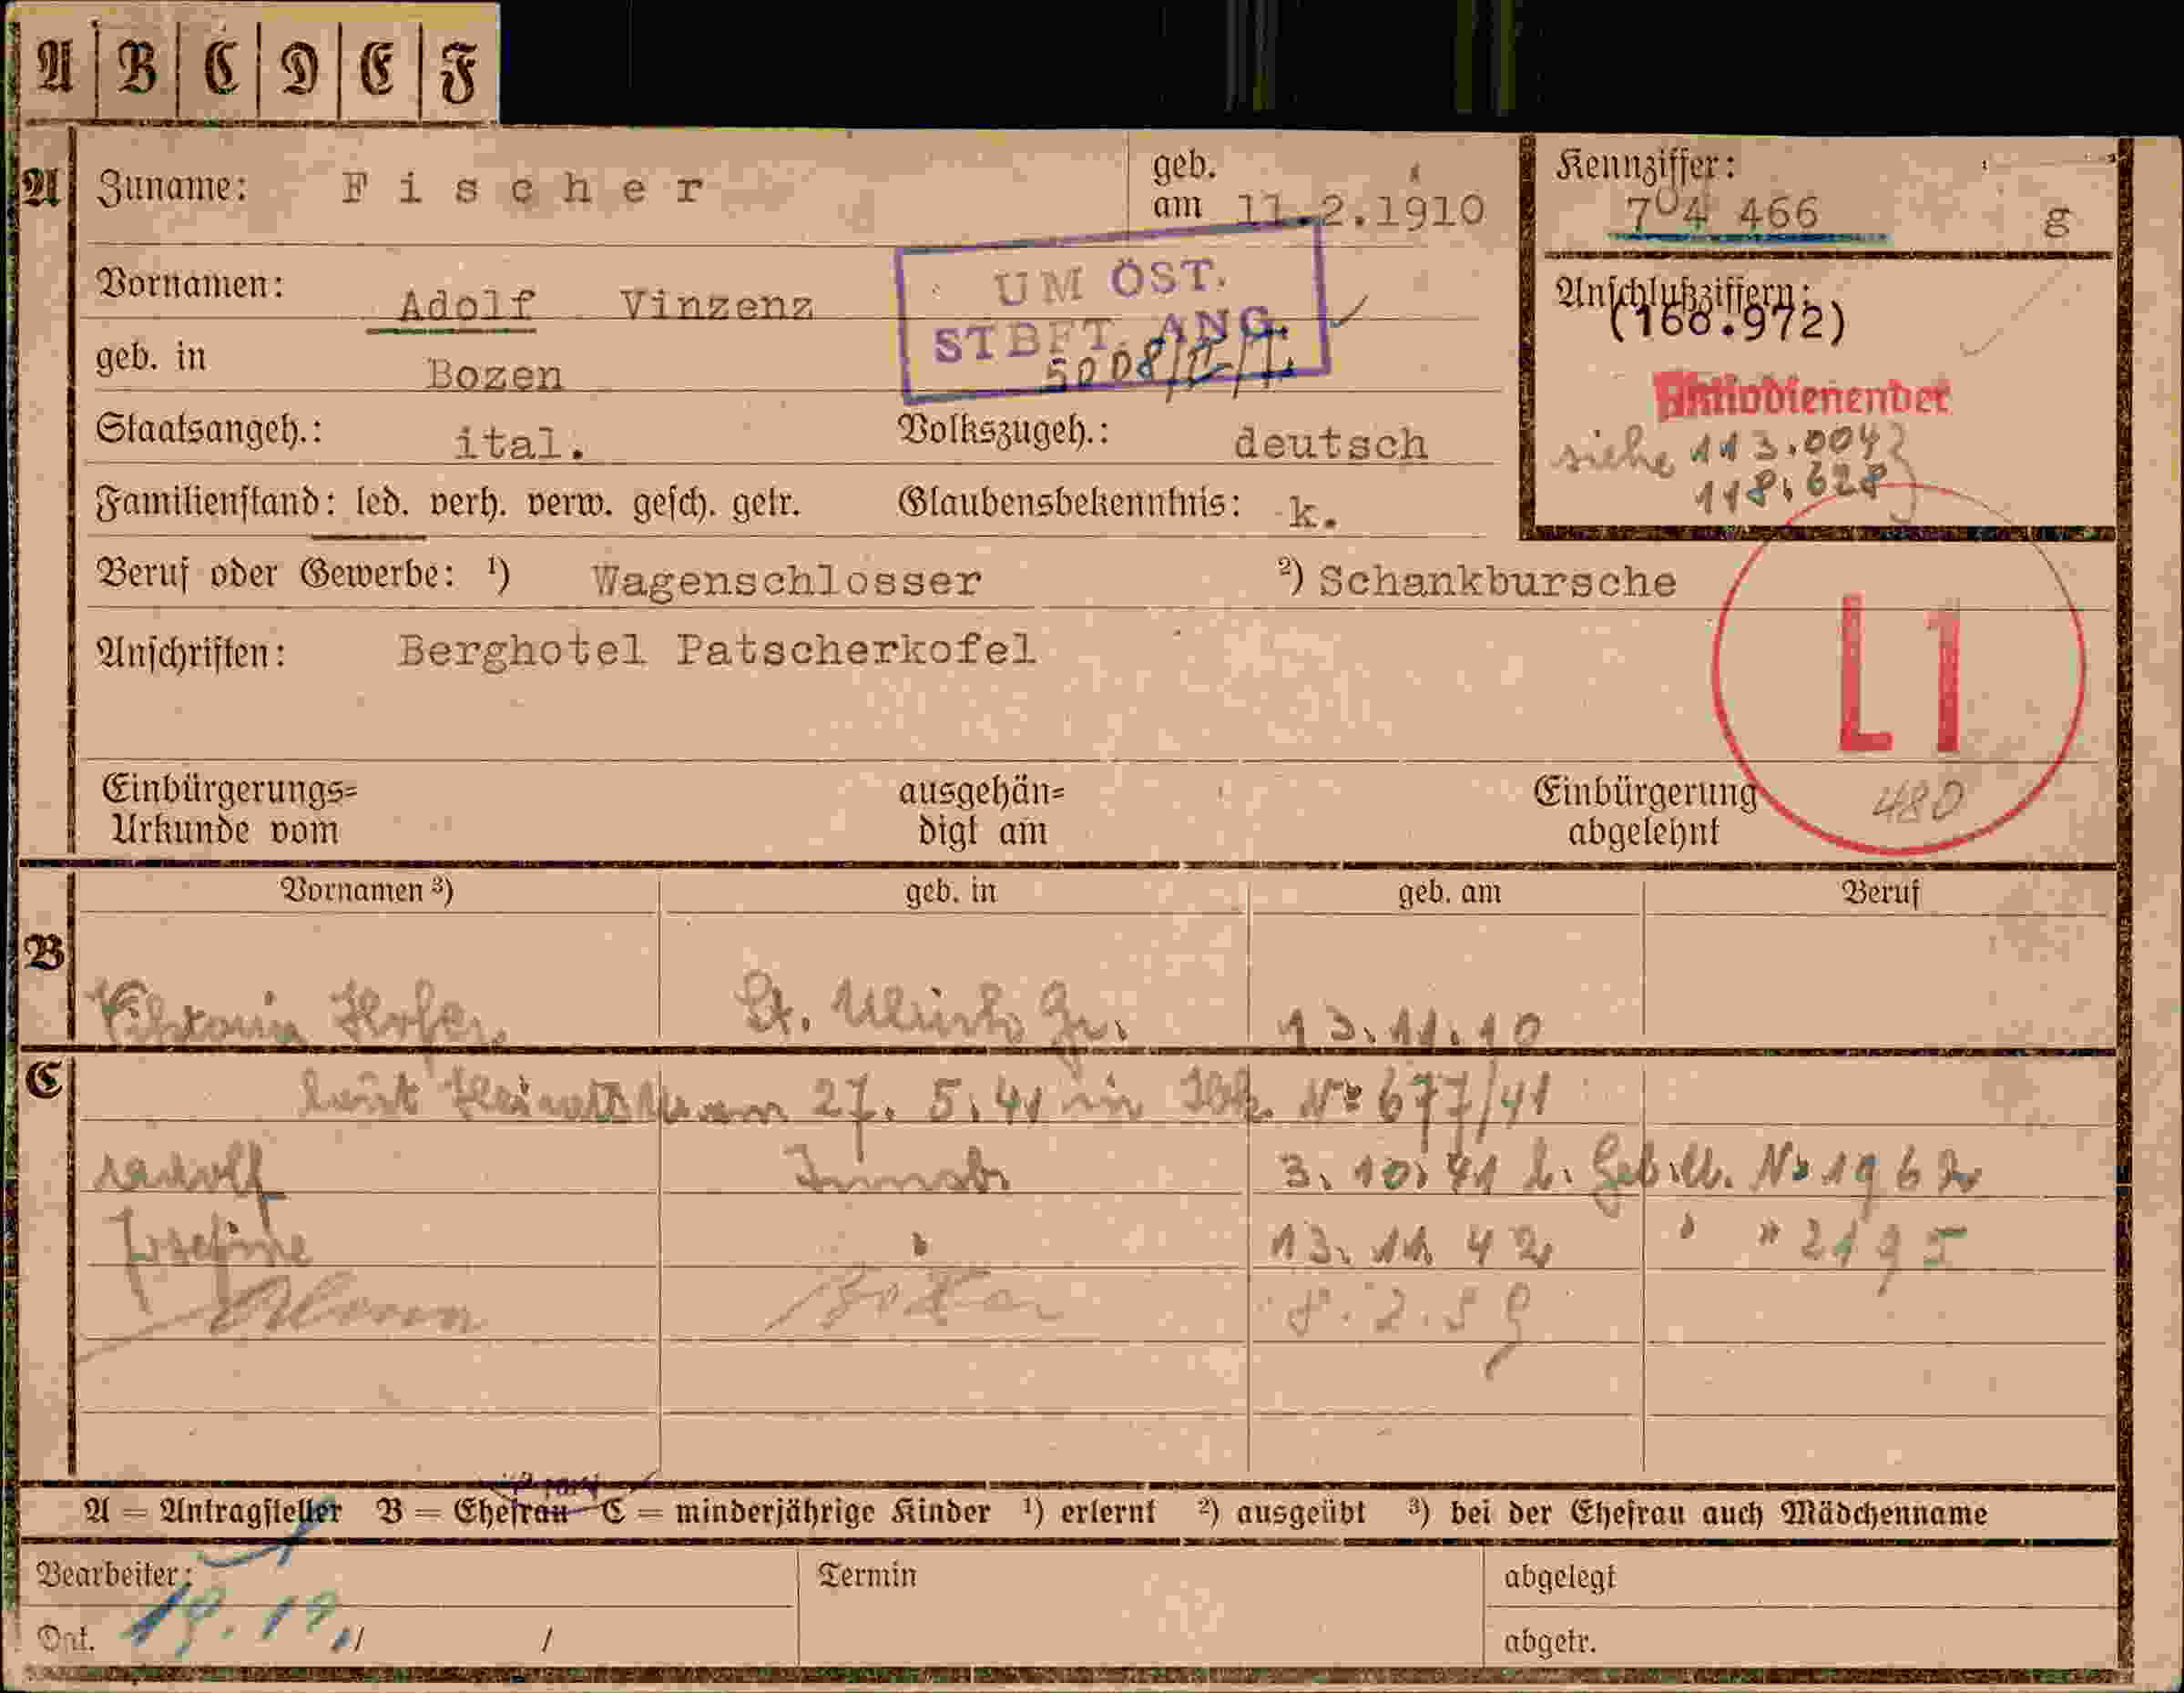 A B C D E F
A Zuname: Fischer geb. am 11.2.1910
Kennziffer: 704 466 g
Vornamen: Adolf Vinzenz
UM ÖST.
STBFT. ANG.
Anschlußziffern:
(168.972)
geb. in Bozen
siehe 113.004
118.628
Staatsangeh.: ital. Volkszugeh.: deutsch
Familienstand: led. verh. verw. gesch. getr. Glaubensbekenntnis: k.
Beruf oder Gewerbe: 1) Wagenschlosser 2) Schankbursche
Anschriften: Berghotel Patscherkofel
L1
480
Einbürgerungs= Urkunde vom
ausgehän= digt am
Einbürgerung abgelehnt
Vornamen 3) geb. in geb. am Beruf
B
Viktoria Hofer St. Ulrich Gr. 13.11.10
C
27. 5. 41 in Ibk. No 677/41
Adolf Innsb. 3. 10. 41 l. Geb. No 1962
Josefine " 13. 11. 42 " " 2195
Bozen 8.2.39
A = Antragsteller B = Ehefrau C = minderjährige Kinder 1) erlernt 2) ausgeübt 3) bei der Ehefrau auch Mädchenname
Bearbeiter: Termin abgelegt
Dat. / / abgetr.